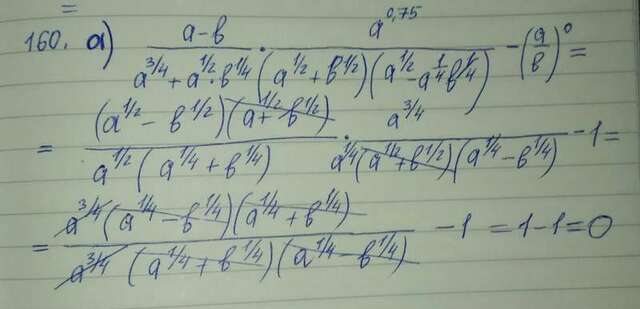 =
160. а) (a-в)/(a^{3/4}+a^{1/2}·в^{1/4}) · a^{0,75}/((a^{1/2}+в^{1/2})(a^{1/2}-a^{1/4}в^{1/4})) - (a/в)^0 =
= (a^{1/2}-в^{1/2})(a+в^{1/2})/(a^{1/2}(a^{1/4}+в^{1/4})) · a^{3/4}/(a^{1/4}(a^{1/2}+в^{1/2})(a^{1/4}-в^{1/4})) - 1 =
= a^{3/4}(a^{1/4}-в^{1/4})(a^{1/4}+в^{1/4})/(a^{3/4}(a^{1/4}+в^{1/4})(a^{1/4}-в^{1/4})) - 1 = 1-1=0